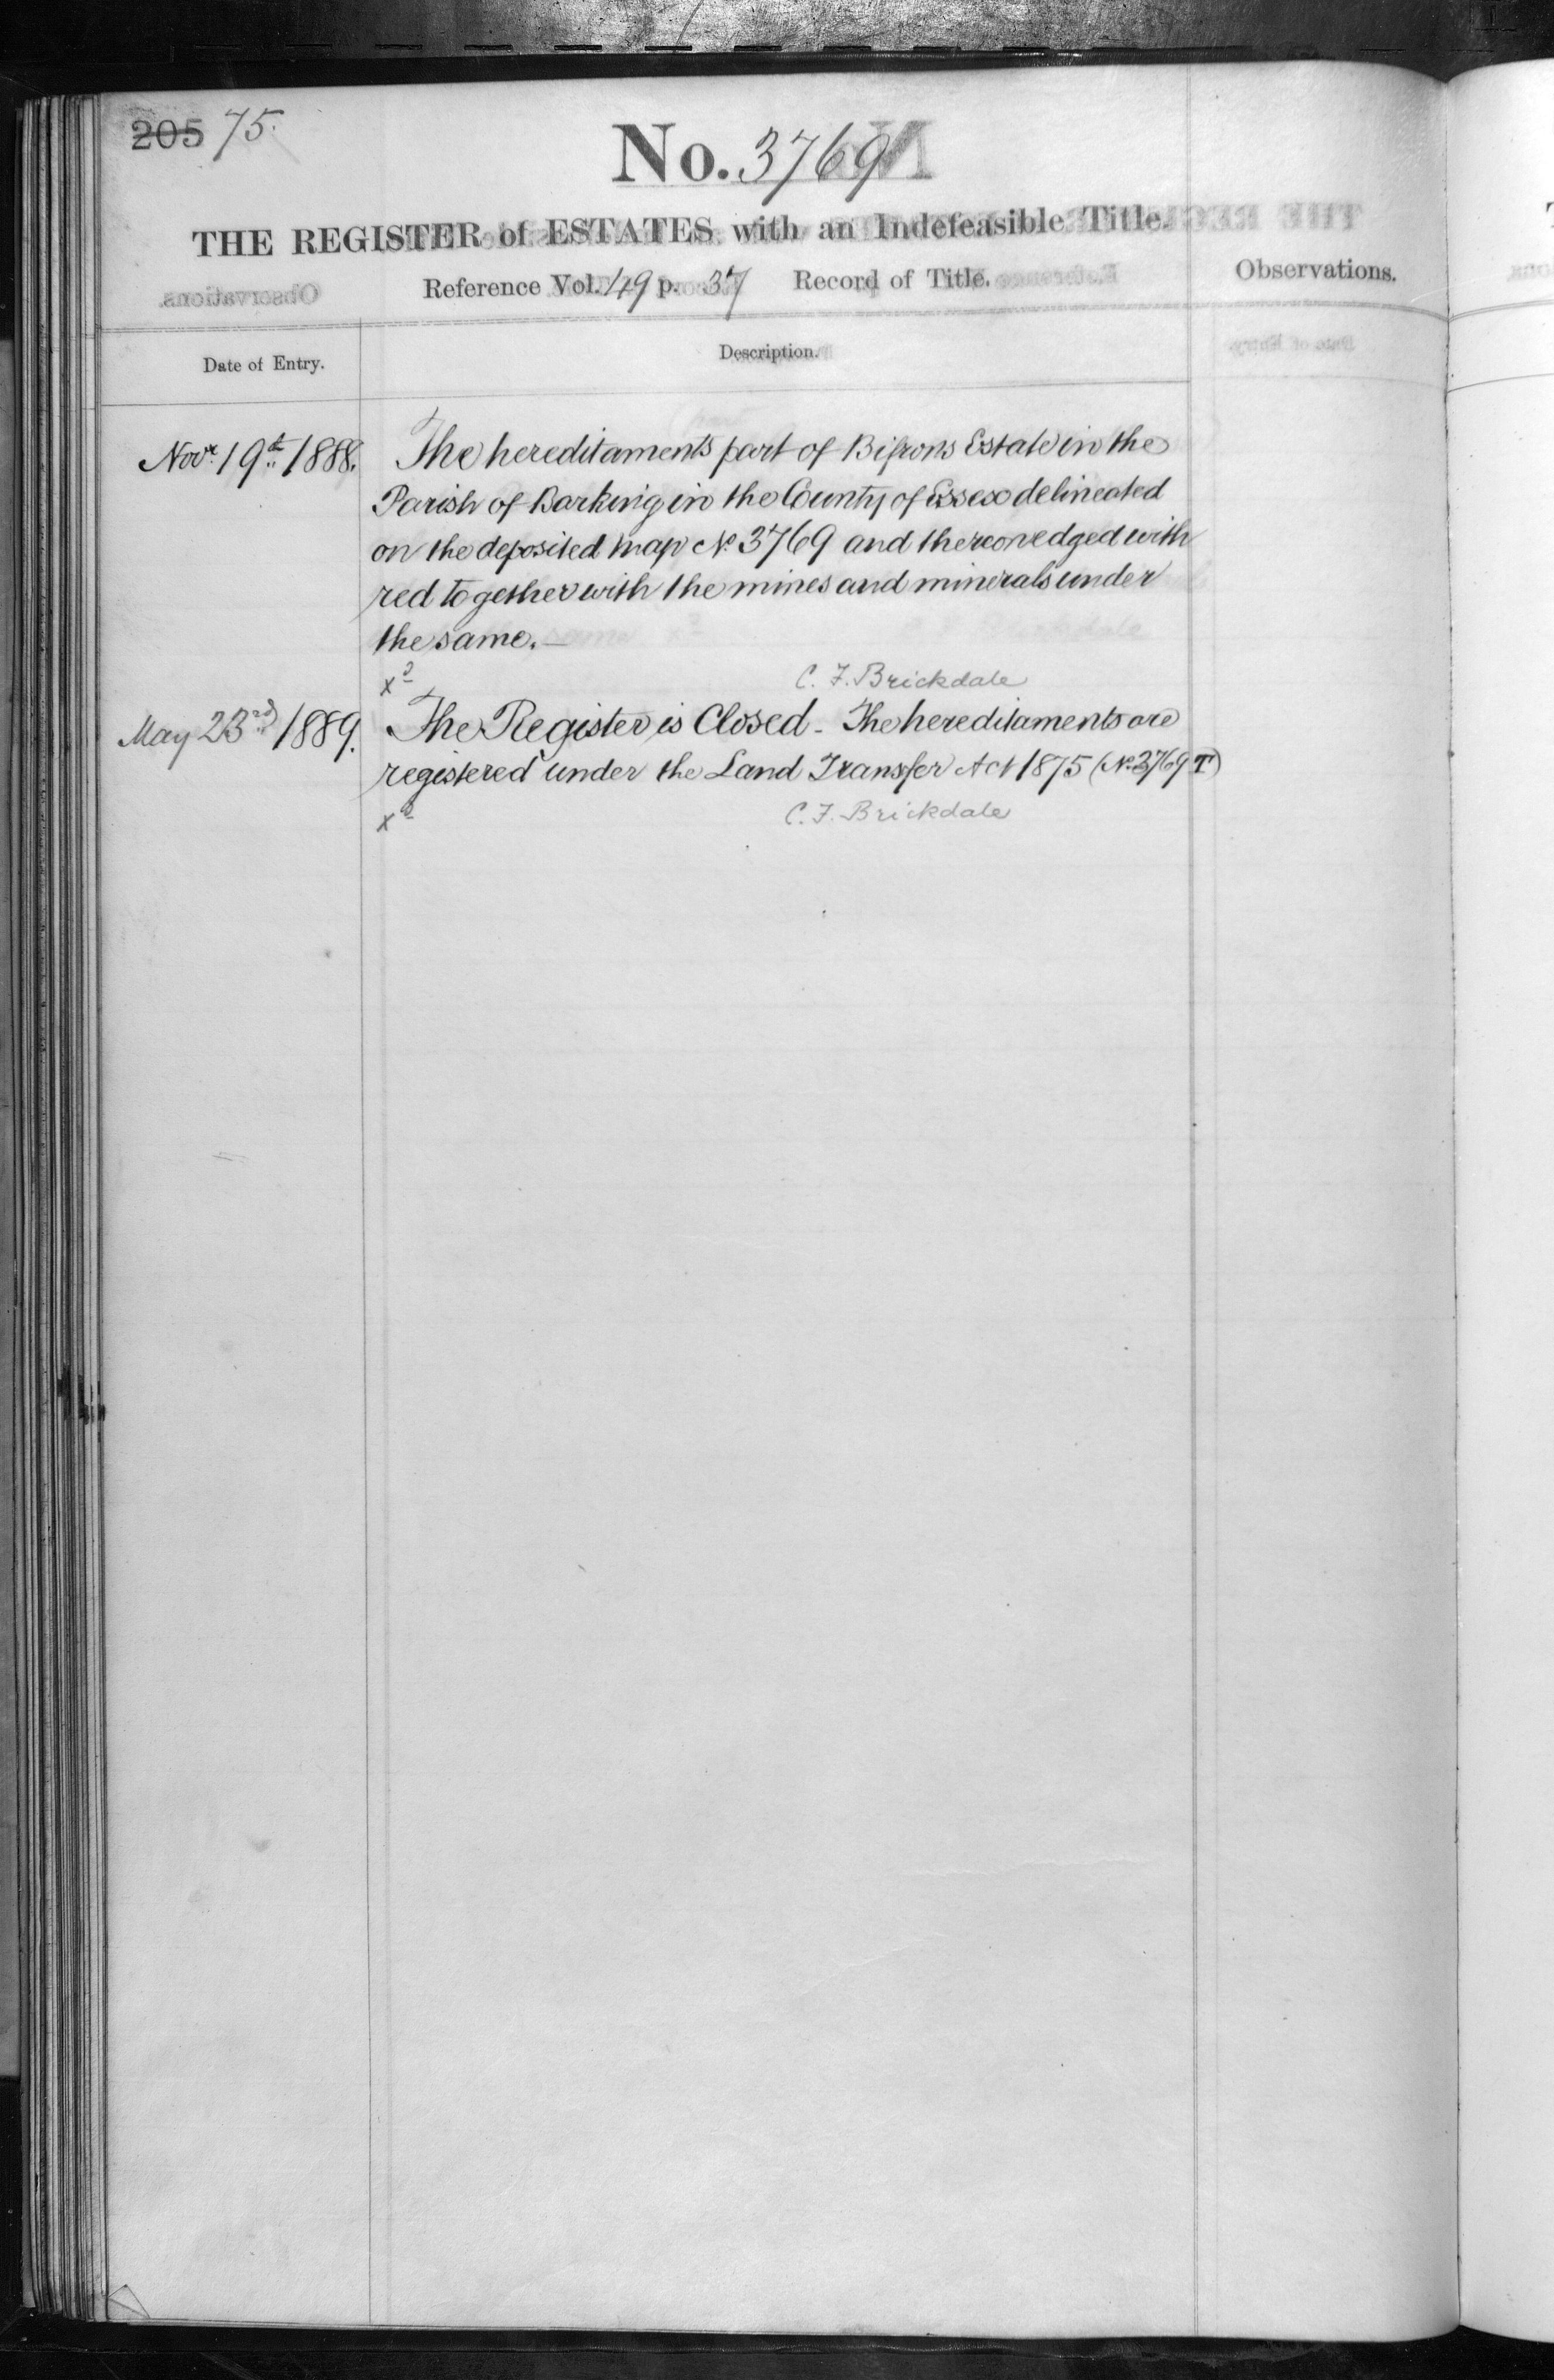 205 75.
No. 3769
THE REGISTER of ESTATES with an Indefeasible Title.
Reference Vol. 49 p. 37 Record of Title.
Observations.
Date of Entry.
Description.
Novr. 19th 1888. The hereditaments part of Bifrons Estate in the
Parish of Barking in the County of Essex delineated
on the deposited map No. 3769 and thereon edged with
red together with the mines and minerals under
the same.—
xd C. F. Brickdale
May 23rd 1889. The Register is Closed - The hereditaments are
registered under the Land Transfer Act 1875 (No. 3769 T)
xd C. F. Brickdale